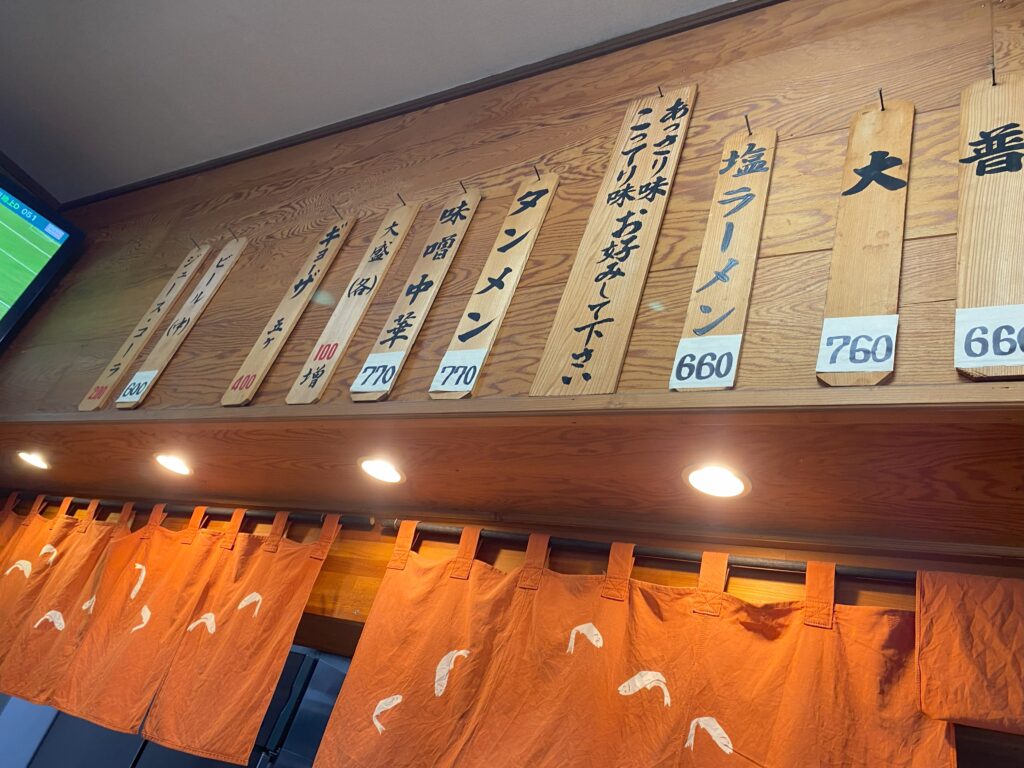 普
660
大
760
塩ラーメン
660
あっさり味・
こってり味
お好みして下さい
タンメン
770
味噌中華
770
大盛(各)
100
増
ギョーザ
五ヶ
400
ビール(中)
600
ジュース・コーラ
200